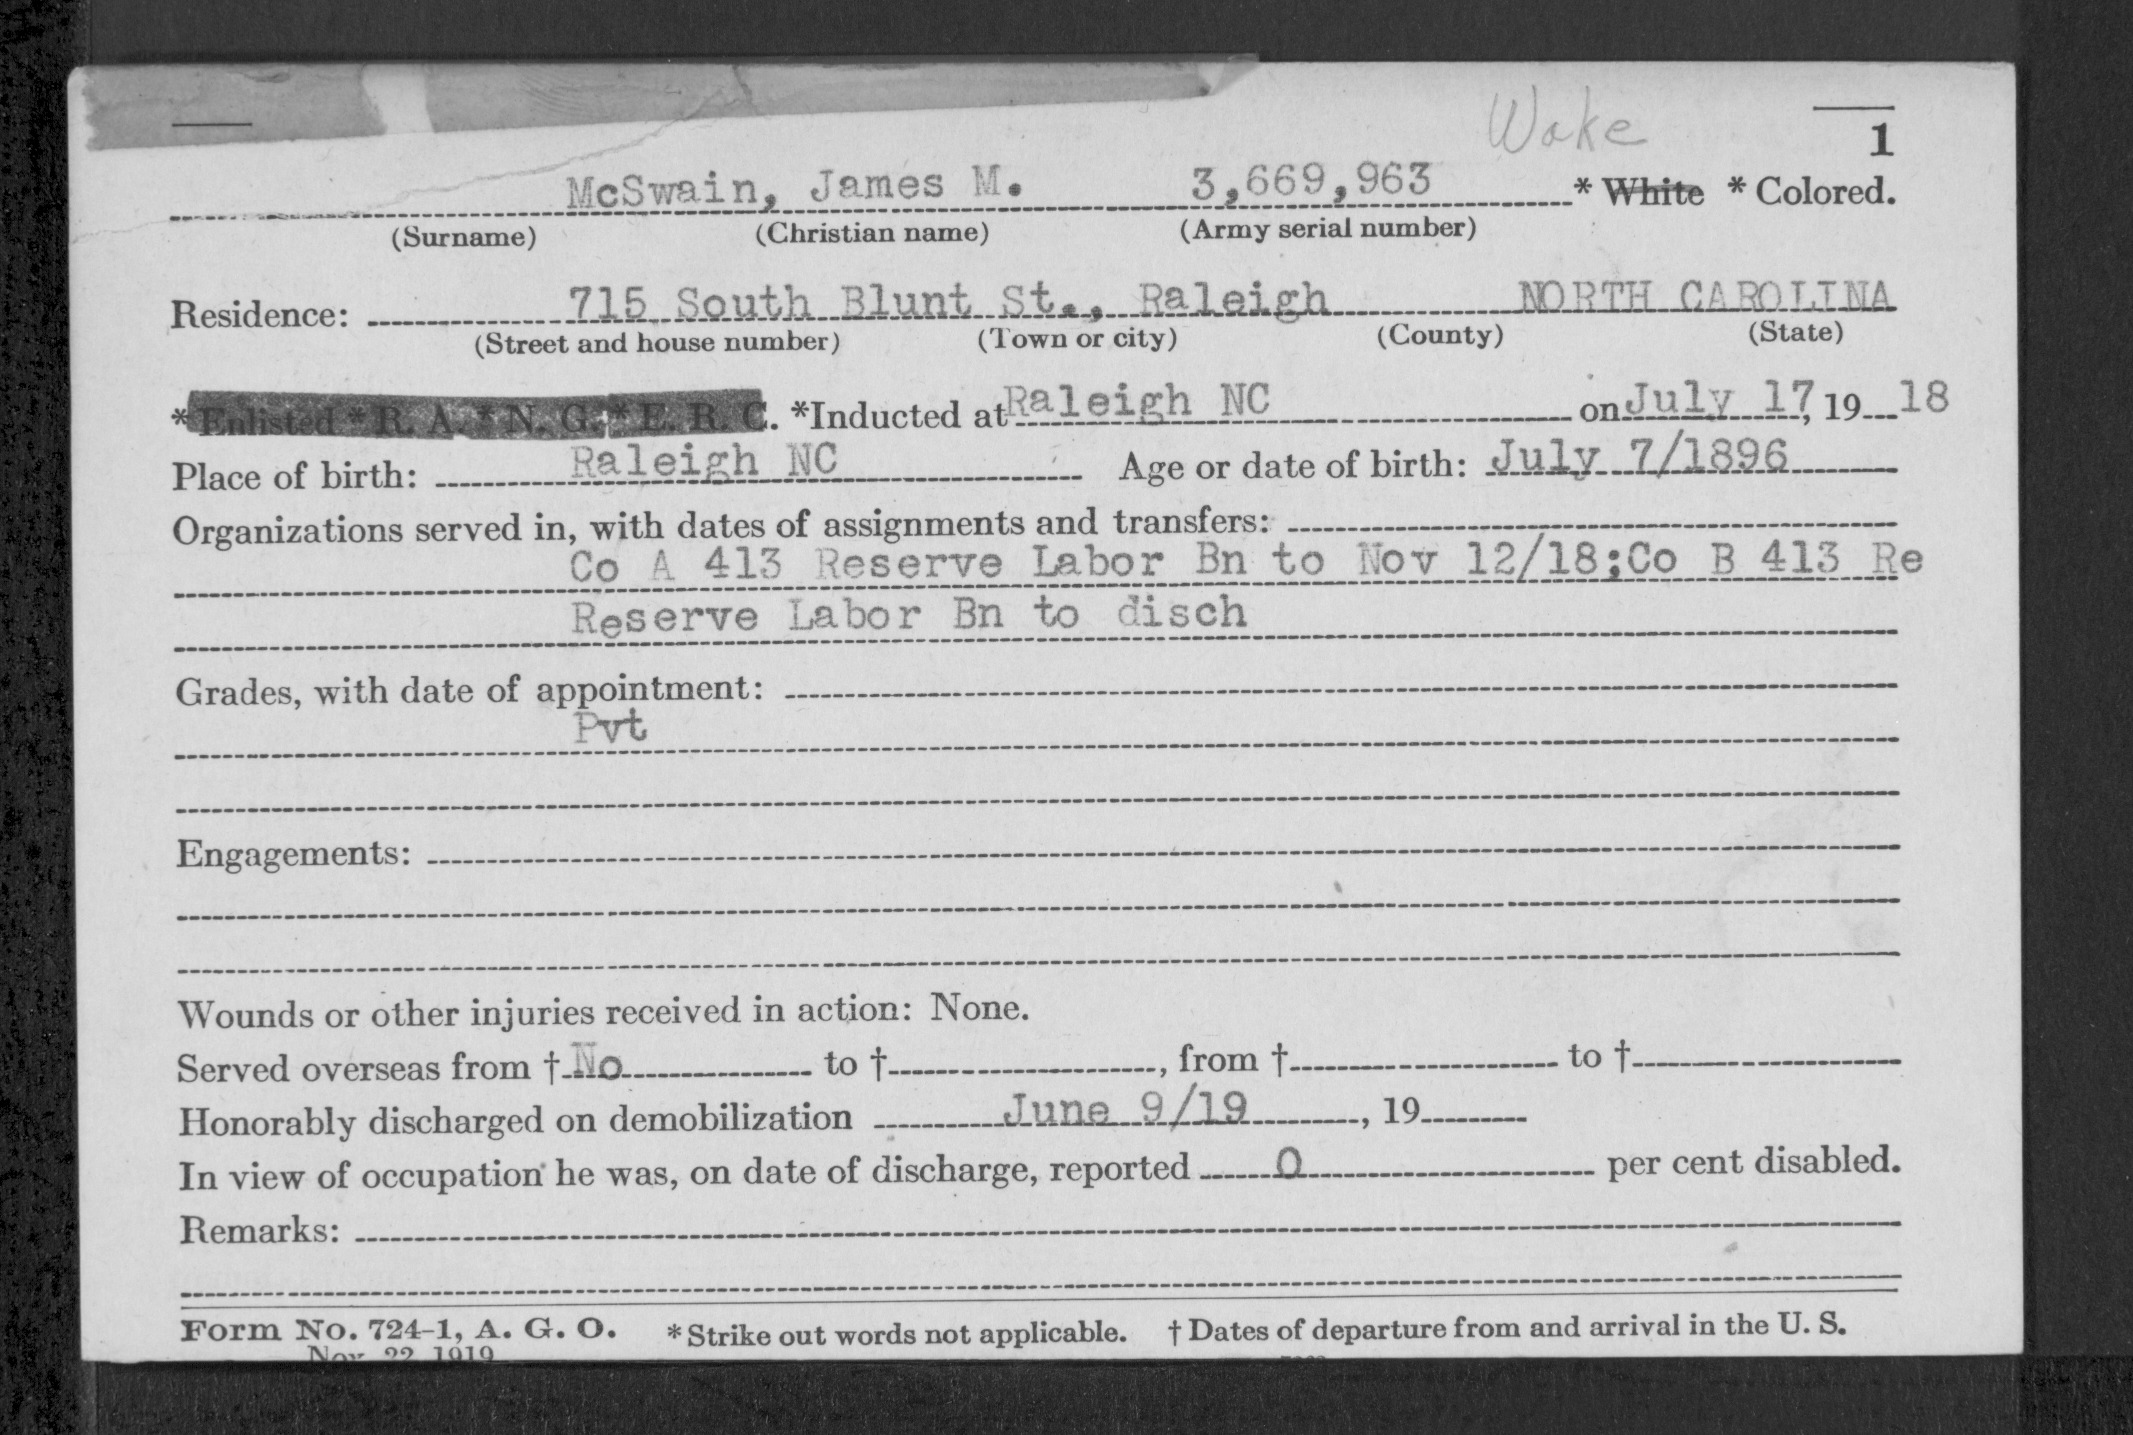 Wake
1
McSwain, James M. 3,669,963 * White * Colored.
(Surname) (Christian name) (Army serial number)
Residence: 715 South Blunt St., Raleigh NORTH CAROLINA
(Street and house number) (Town or city) (County) (State)
* Enlisted * R. A. * N. G. * E. R. C. *Inducted at Raleigh NC on July 17, 19 18
Place of birth: Raleigh NC Age or date of birth: July 7/1896
Organizations served in, with dates of assignments and transfers:
Co A 413 Reserve Labor Bn to Nov 12/18;Co B 413 Re
Reserve Labor Bn to disch
Grades, with date of appointment:
Pvt
Engagements:
Wounds or other injuries received in action: None.
Served overseas from † No to † , from † to †
Honorably discharged on demobilization June 9/19 , 19
In view of occupation he was, on date of discharge, reported 0 per cent disabled.
Remarks:
Form No. 724-1, A. G. O. * Strike out words not applicable. † Dates of departure from and arrival in the U. S.
Nov. 22 1919